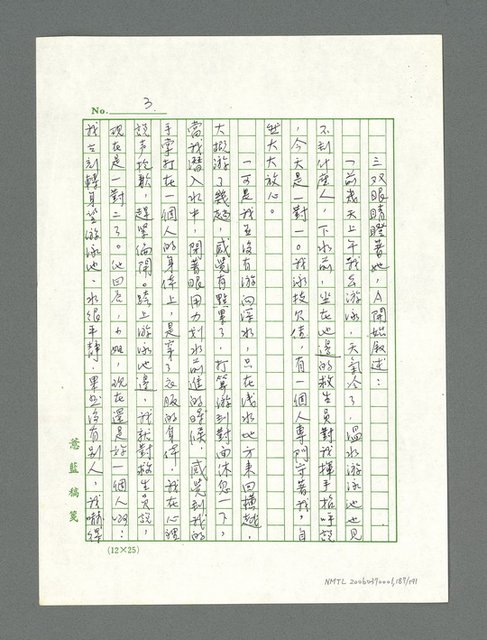 No. 3.
三双眼睛瞪著她，A開始敘述：
「前幾天上午我去游泳，天氣冷了，溫水游泳池也見
不到什麼人，下水前，坐在池邊的救生員對我揮手招呼說
，今天是一對一。我泳技欠佳，有一個人專門守著我，自
然大大放心。
「可是我並沒有游向深水，只在淺水地方來回橫越，
大概游了幾趟，感覺有點累了，打算游到對面休息一下，
當我潛入水中，閉著眼用力划水前進的時候，感覺到我的
手掌打在一個人的身体上，是穿了衣服的身体，我在心裡
說声抱歉，趕緊偏開。踏上游泳池邊，我就對救生員說，
現在是一對二了。他回答，小姐，現在還是妳一個人啊。
我立刻轉身望游泳池，水很平靜，果然沒有別人，我嚇得
薏藍稿箋
(12×25)
NMTL 20060370006,187/191